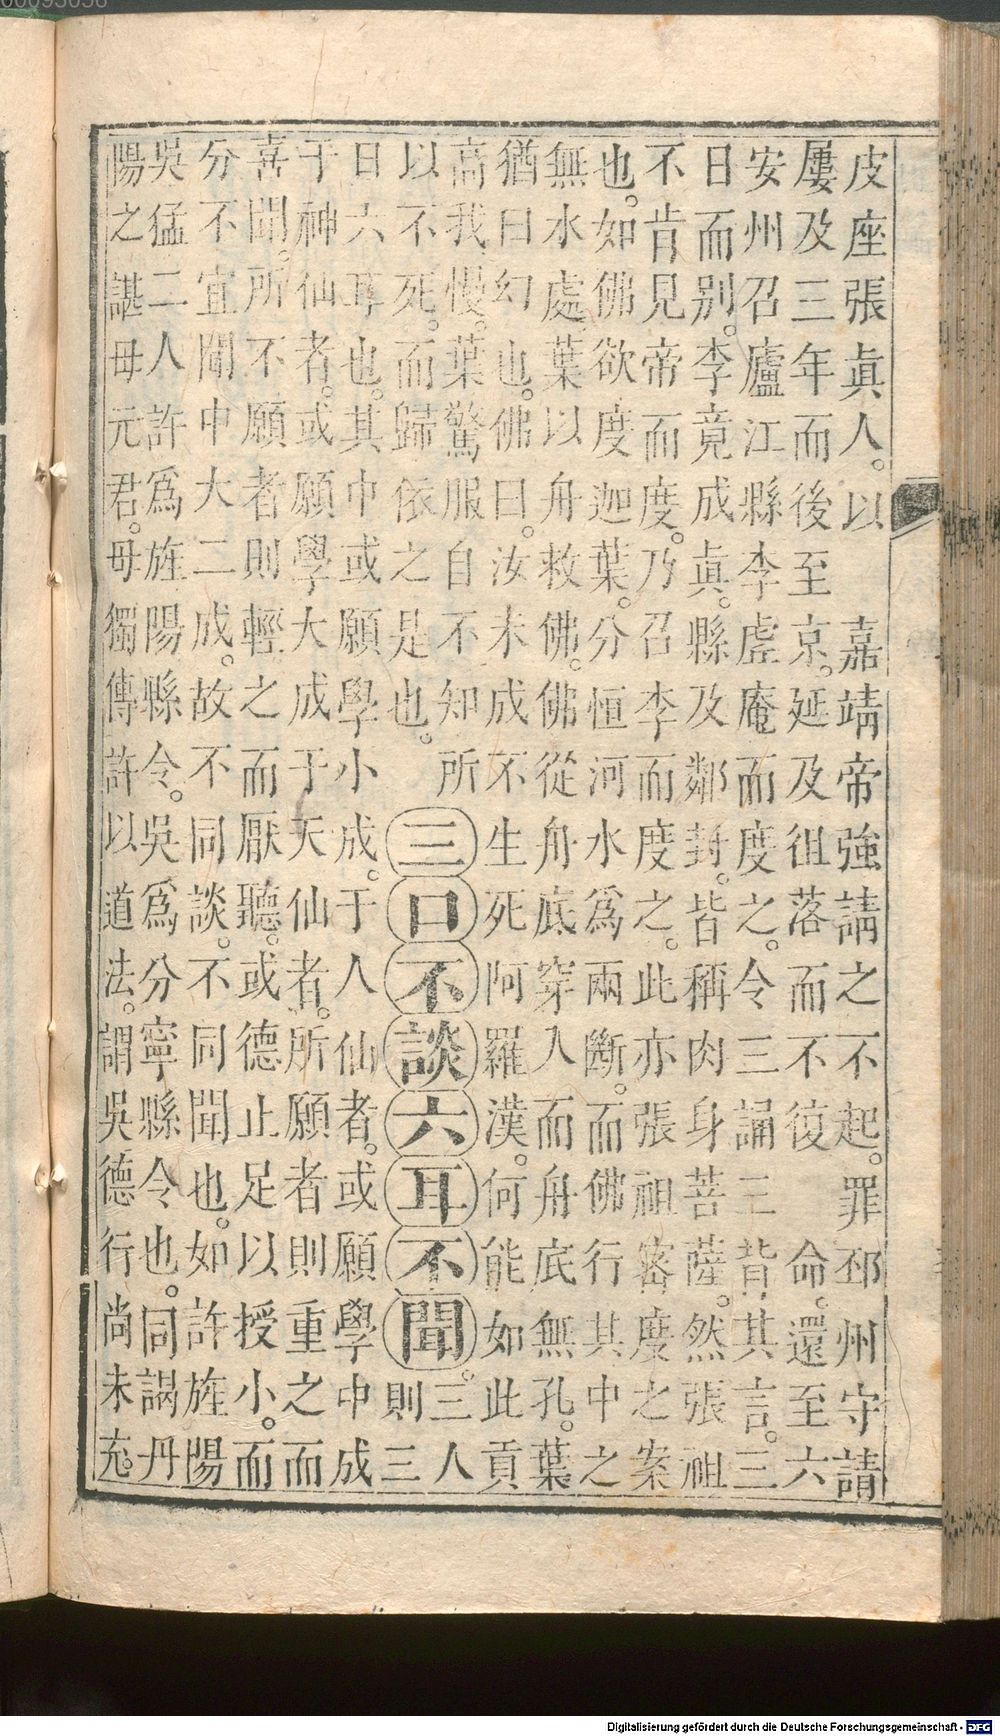 皮座張眞人。以嘉靖帝強請之不起。罪邳州守請
屢及三年而後至京。延及徂落而不復命。還至六
安州召廬江縣李虛庵而度之。令三誦三背其言。三
日而别。李竟成眞。縣及鄰封。皆稱肉身菩薩。然張祖
不肯見帝而度。乃召李而度之。此亦張祖密度之案
也。如佛欲度迦葉。分恒河水爲兩斷。而佛行其中之
無水處葉以舟救佛。佛從舟底穿入而舟底無孔。葉
猶曰幻也。佛曰。汝未成不生死阿羅漢。何能如此貢
高我慢。葉驚服自不知所
以不死。而歸依之是也。
三口不談六耳不聞。
三人
則三
日六耳也。其中或願學小成。于人仙者。或願學中成
于神仙者。或願學大成于天仙者。所願者則重之而
喜聞。所不願者則輕之而厭聽。或德止足以授小。而
分不宜聞中大二成。故不同談。不同聞也。如許旌陽
吳猛二人許爲旌陽縣令。吳爲分寧縣令也。同謁丹
陽之諶母元君。母獨傳許以道法。謂吳德行尚未充。
Digitalisierung gefördert durch die Deutsche Forschungsgemeinschaft - DFG